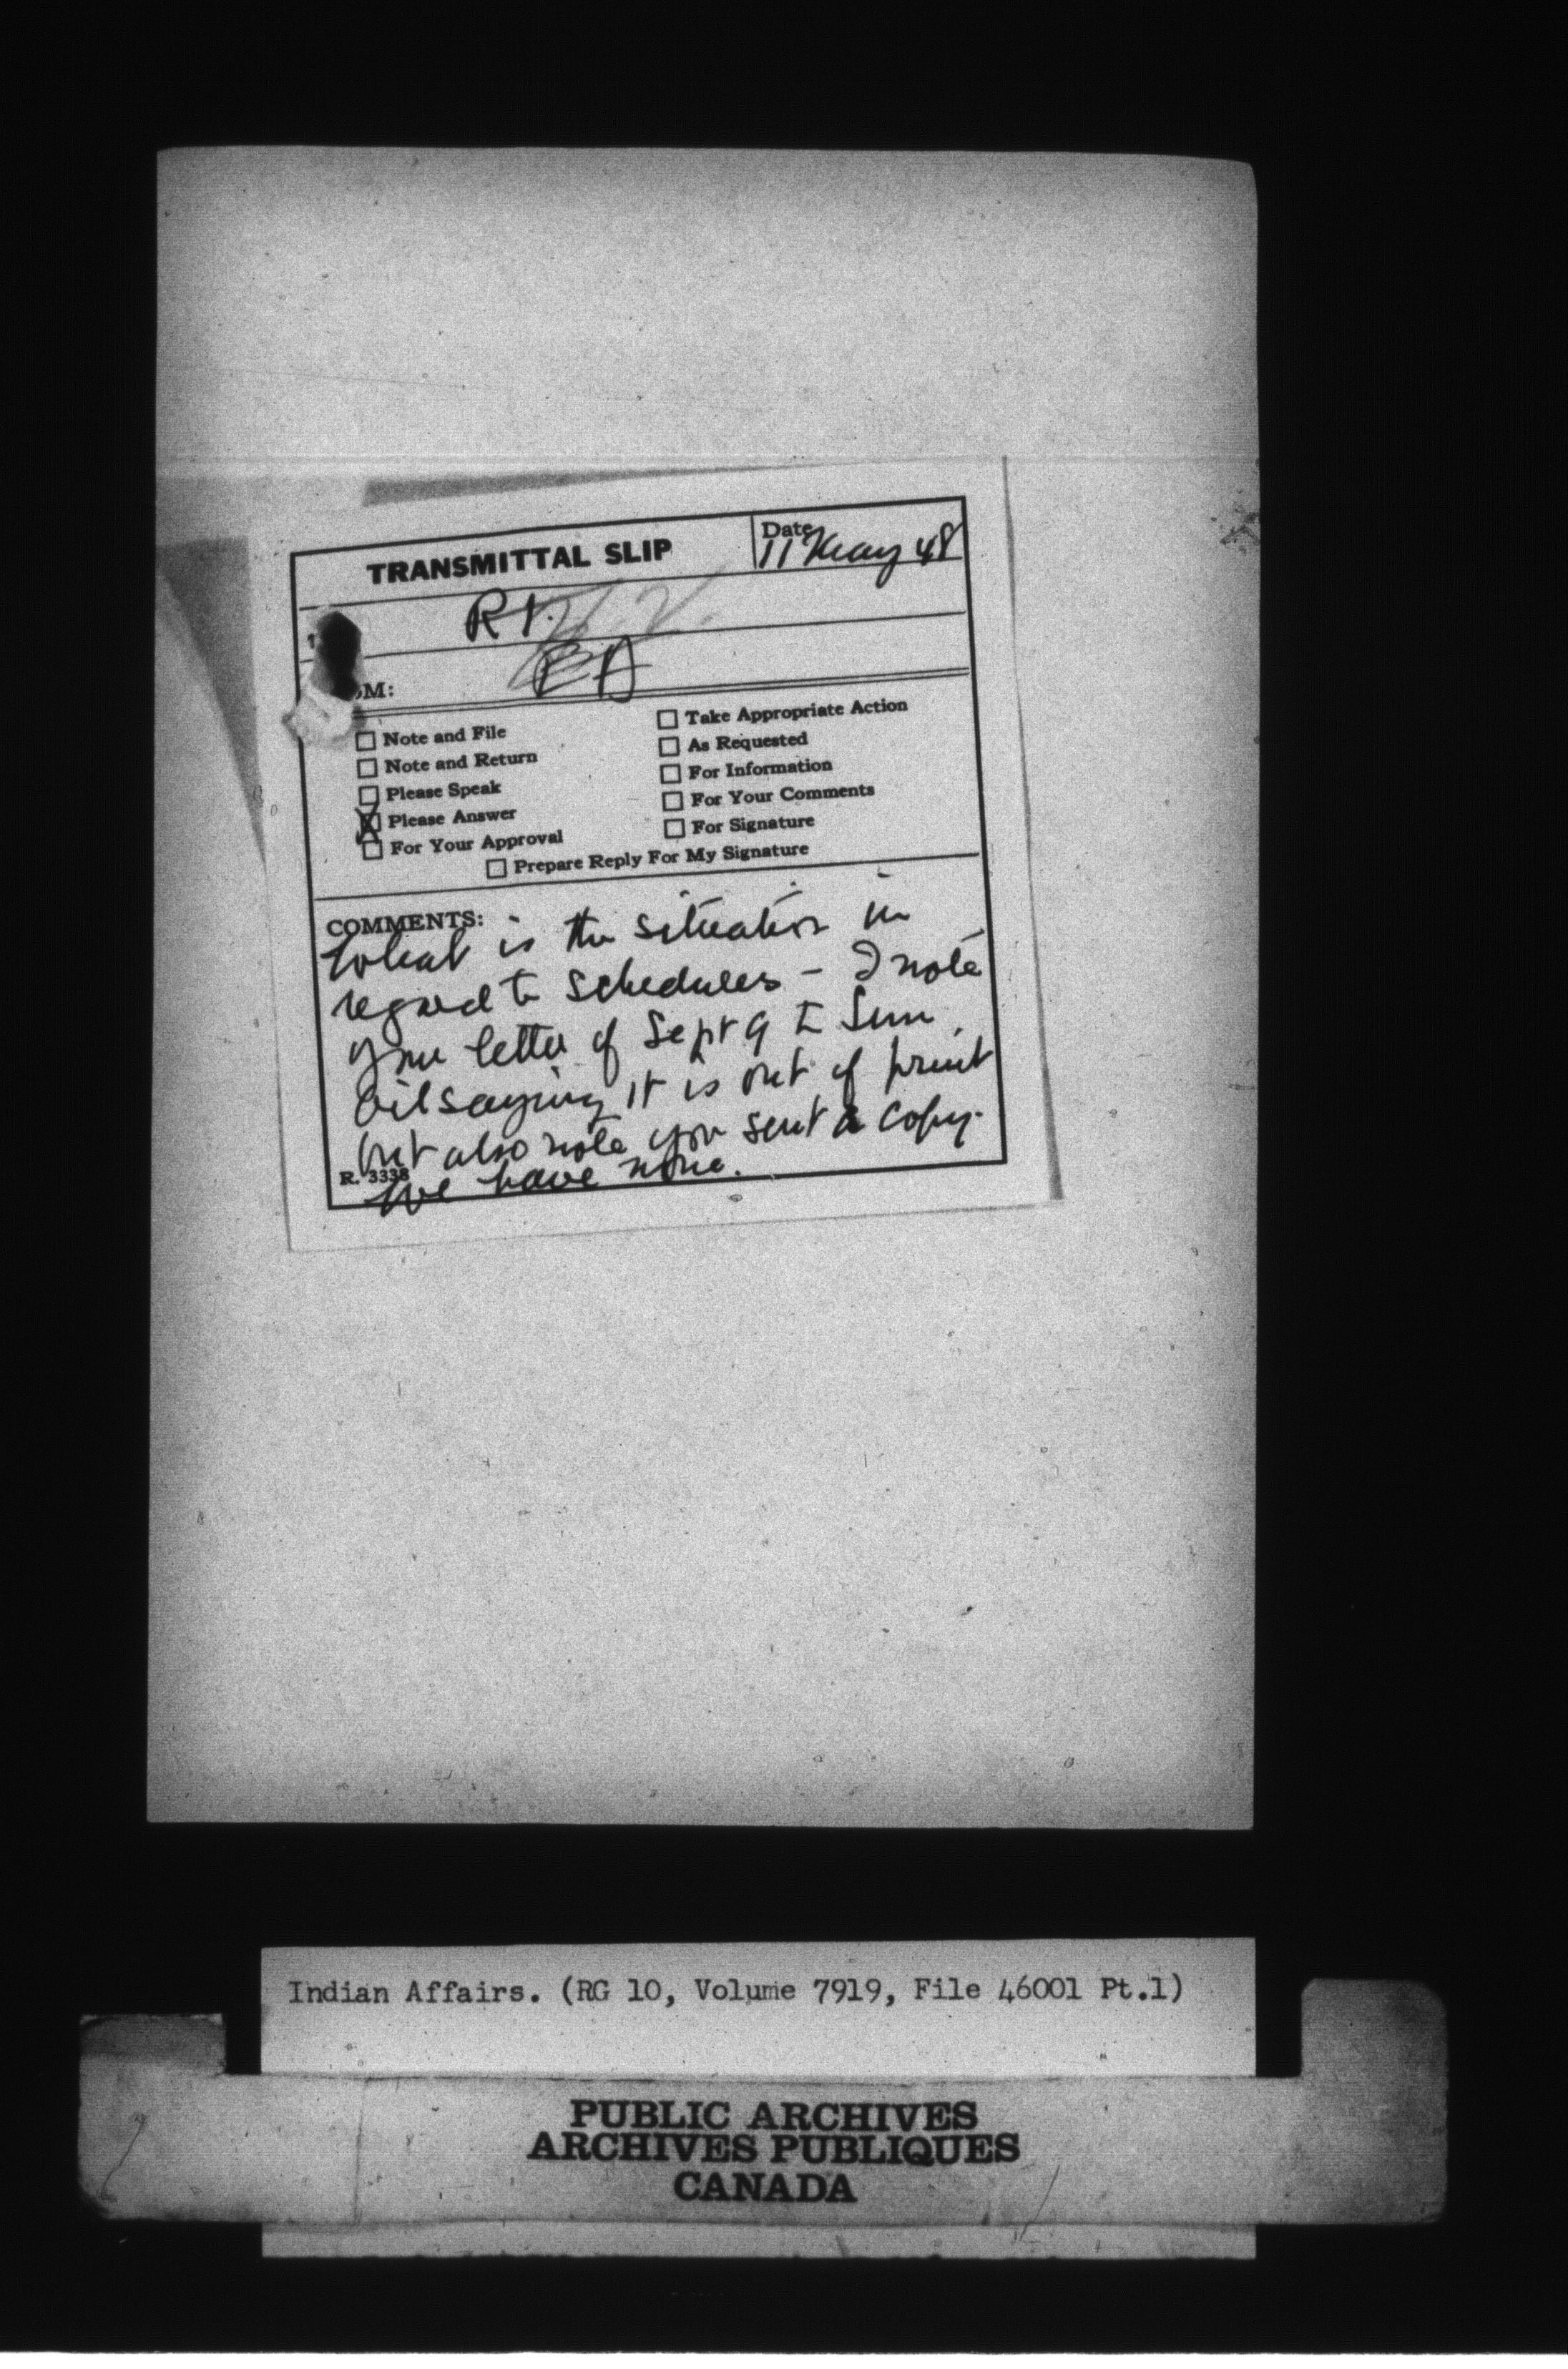 TRANSMITTAL SLIP
Date
11 May 48
OM:
Note and File
Note and Return
Please Speak
Please Answer
For Your Approval
Take Appropriate Action
As Requested
For Information
For Your Comments
For Signature
Prepare Reply For My Signature
COMMENTS:
What is the situation in
regard to schedules - I note
your letter of Sept 9 to Sun
Oil saying it is out of print
but also note you sent a copy.
We have none.
R. 3338
Indian Affairs. (RG 10, Volume 7919, File 46001 Pt.1)
PUBLIC ARCHIVES
ARCHIVES PUBLIQUES
CANADA